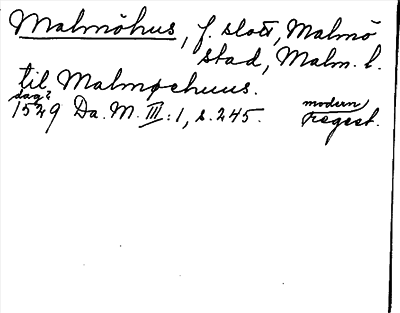 Malmöhus, f. slott, Malmö
stad, Malm. l.
til Malmøehuus.
dag?
1529 Da. M. III: 1, s. 245. modern
regest.